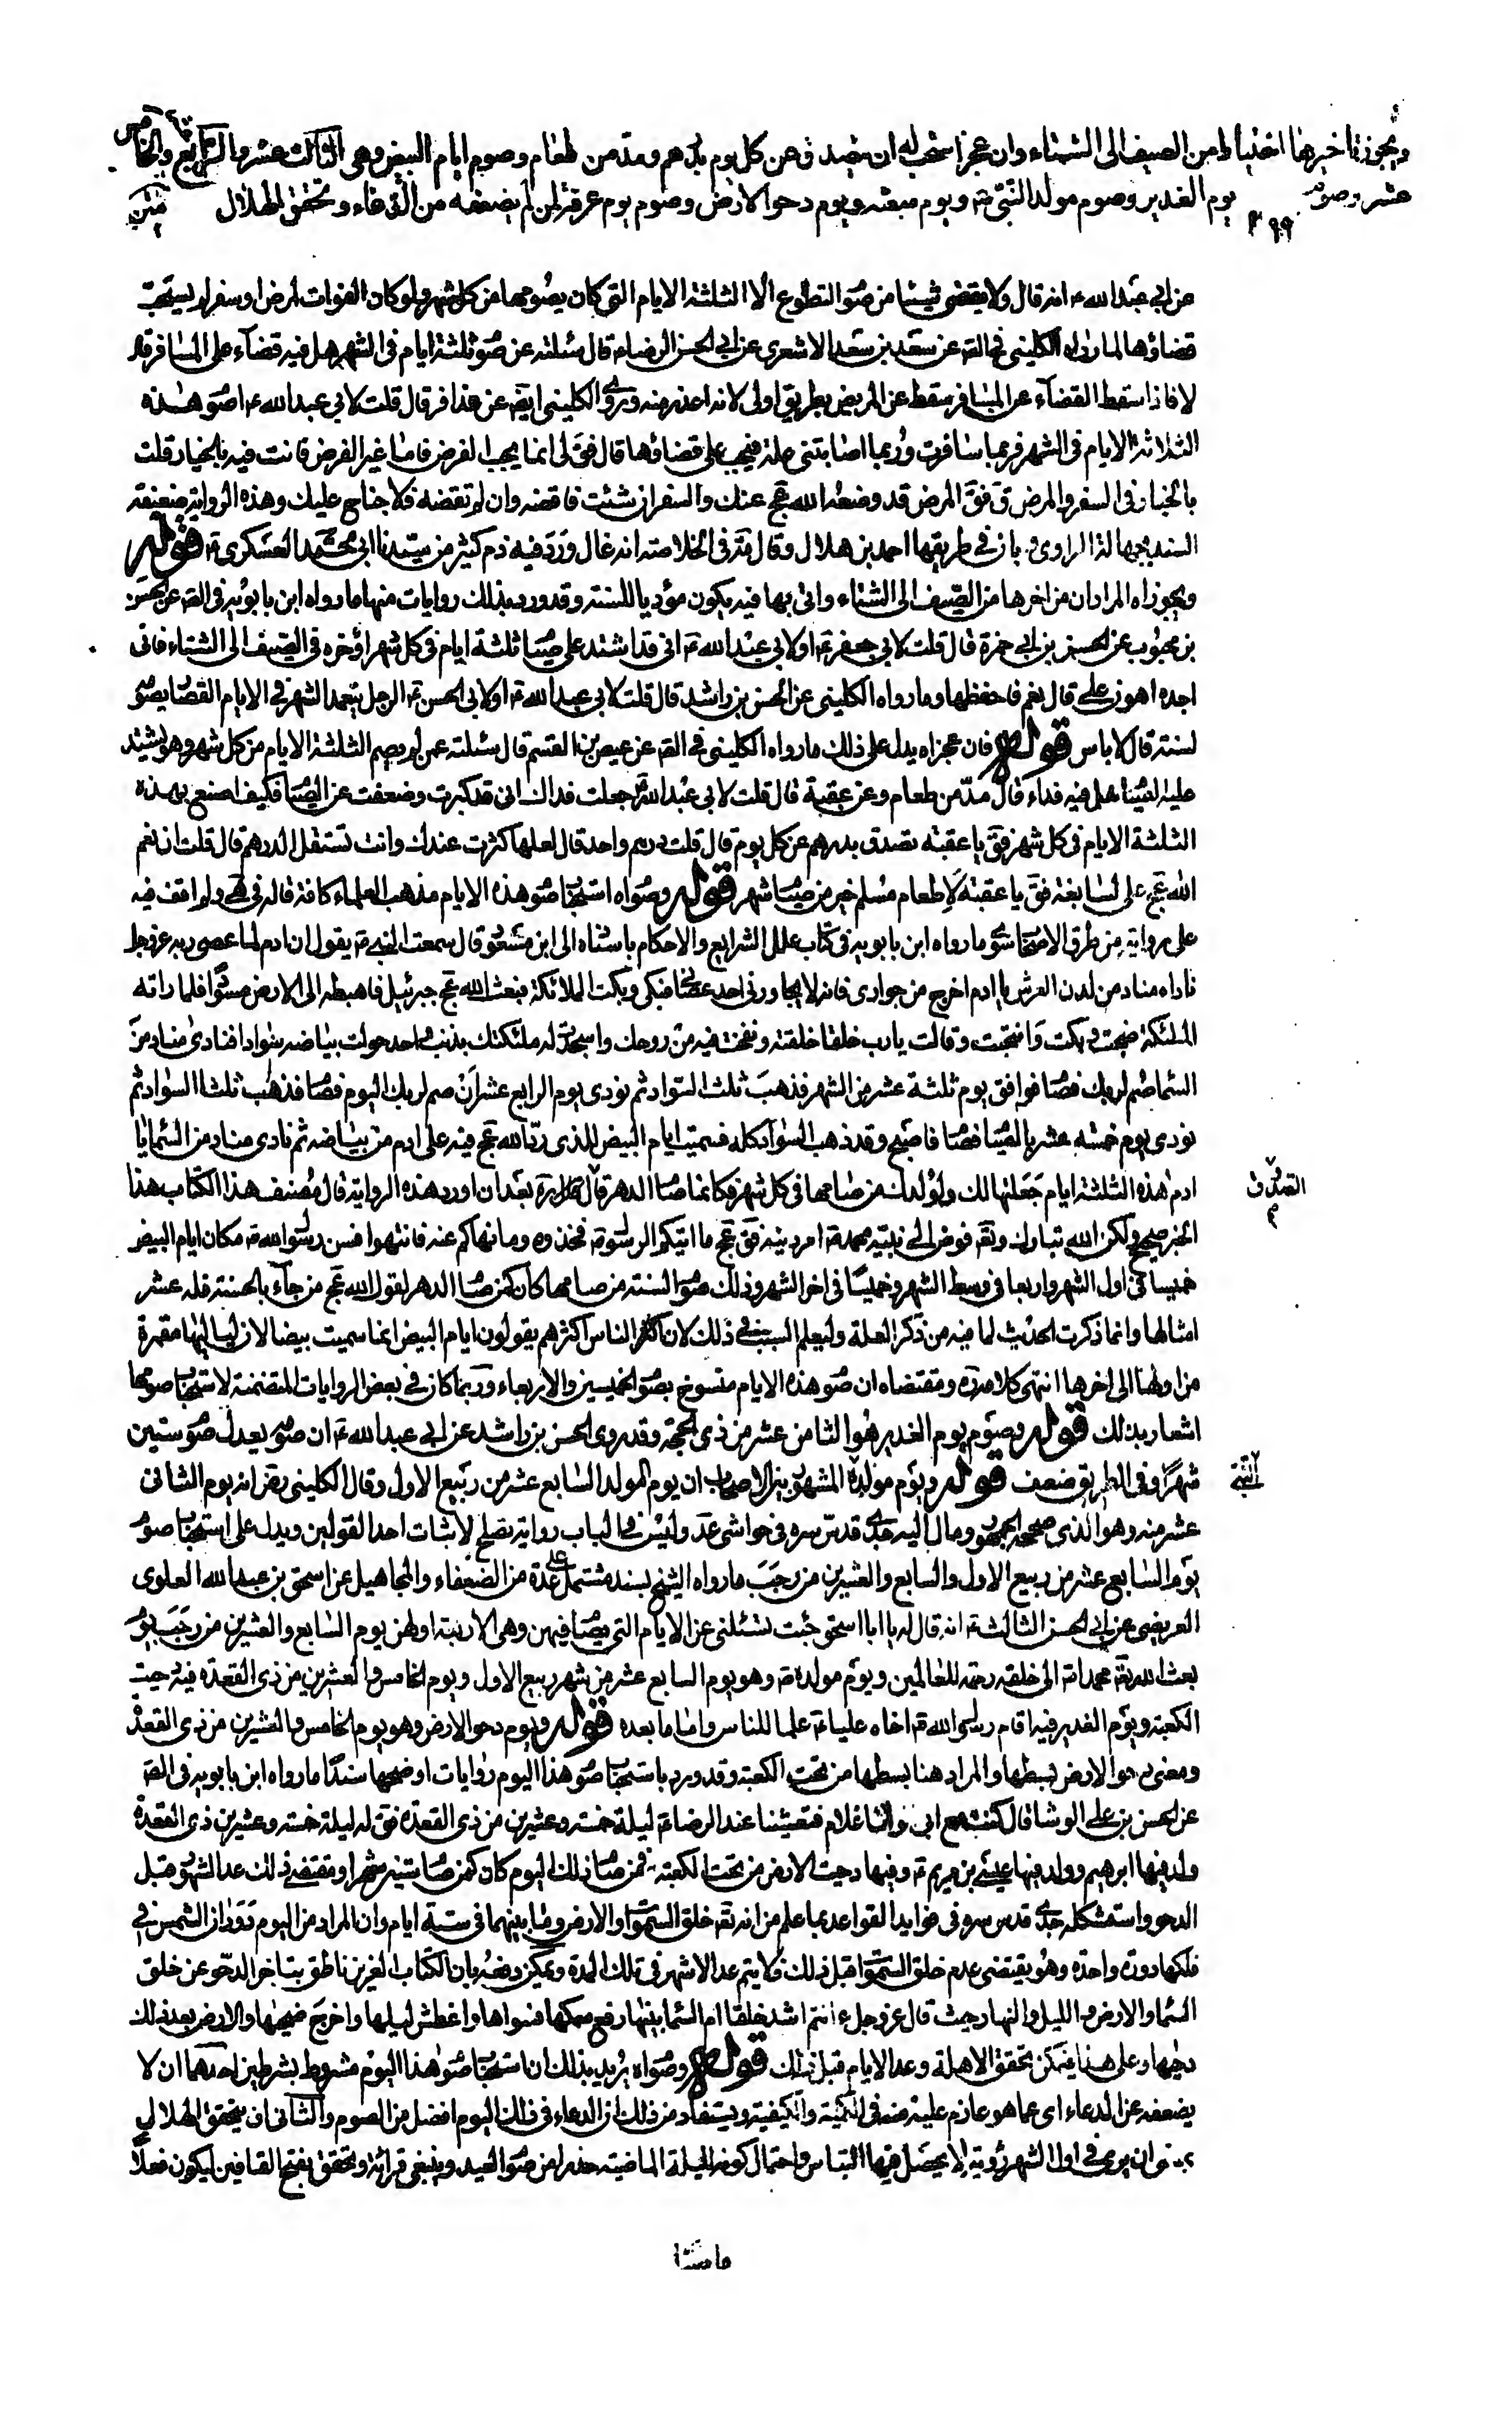 ويجوز تاخيرها اختيارا من الصيف الى الشتاء وان عجز استحب له ان يتصدق عن كل يوم بدرهم او مد من طعام وصوم ايام البيض وهي الثالث عشر والرابع والخامس
عشر وصوم يوم الغدير وصوم مولد النبي ص ويوم مبعثه ويوم دحو الارض وصوم يوم عرفة لمن لم يضعفه من الدعاء وتحقق الهلال
٢٩٩
عن ابي عبد الله ع انه قال ولا يقضى شيئا من صو التطوع الا الثلثة الايام التي كان يصومها من كل شهر ولو كان الفوات لمرض او سفر لم يستحب
قضاؤها لما رواه الكليني في الص عن سعد بن سعد الاشعري عن ابي الحسن الرضا ع قال سئلته عن صو ثلثة ايام في الشهر هل فيه قضاء على المسافر قال
لا فاذا سقط القضاء عن المسافر سقط عن المريض بطريق اولى لانه اعذر منه وروى الكليني ايض عن عذافر قال قلت لابي عبد الله ع اصو هذه
الثلاثة الايام في الشهر فربما سافرت وربما اصابتني علة فيجب على قضاؤها قال فق لى انما يجب الفرض فاما غير الفرض فانت فيه بالخيار قلت
بالخيار في السفر والمرض ق فق المرض قد وضعه الله عج عنك والسفر ان شئت فاقضه وان لم تقضه فلا جناح عليك وهذه الرواية ضعيفة
السند بجهالة الراوي وبان في طريقها احمد بن هلال وقال مة في الخلاصة انه غال وورد فيه ذم كثير من سيدنا ابي محمد العسكري ع قوله
ويجوز اه المراد ان من اخرها من الصيف الى الشتاء واتى بها فيه يكون مؤديا للسنة وقد ورد بذلك روايات منها ما رواه ابن بابويه في الص عن الحسن
بن محبوب عن الحسن بن ابي حمزة قال قلت لابي جعفر ع او لابي عبد الله ع اني قد اشتد على صيا ثلثة ايام في كل شهر اؤخره في الصيف الى الشتاء فاني
اجده اهون على قال نعم فاحفظها وما رواه الكليني عن الحسن بن راشد قال قلت لابي عبد الله ع او لابي الحسن ع الرجل يتعمد الشهر في الايام القصا يصو
لسنة قال لا باس قوله فان عجز اه يدل على ذلك ما رواه الكليني في الص عن عيص بن القسم قال سئلته عمن لم يصم الثلثة الايام من كل شهر وهو يشتد
عليه الصيا هل فيه فداء قال مد من طعام وعن عقبة قال قلت لابي عبد الله ع جعلت فداك اني قد كبرت وضعفت عن الصيا فكيف اصنع بهذه
الثلثة الايام في كل شهر فق يا عقبة تصدق بدرهم عن كل يوم قال قلت درهم واحد قال لعلها كثرت عندك وانت تستقل الدرهم قال قلت ان نعم
الله عج على لسابغة فق يا عقبة لاطعام مسلم خير من صيا شهر قوله وصو اه استحبا صو هذه الايام مذهب العلماء كافة قاله في هى ولم اقف فيه
على رواية من طرق الاصحا سوى ما رواه ابن بابويه في كتاب علل الشرايع والاحكام باسناه الى ابن مسعو قال سمعت النبي ص يقول ان ادم لما عصى ربه عز وجل
ناداه مناد من لدن العرش يا ادم اخرج من جواري فانه لا يجاورني احد عصاني فبكى وبكت الملائكة فبعث الله عج جبرئيل فاهبطه الى الارض مسودا فلما راته
الملئكة ضجت وبكت وانتحبت وقالت يا رب خلقا خلقته ونفخت فيه من روحك واسجدت له ملئكتك بذنب واحد حولت بياضه سوادا فنادى مناد من
السماء صم لربك فصا فوافق يوم ثلثة عشر من الشهر فذهب ثلث السواد ثم نودى يوم الرابع عشر ان صم لربك اليوم فصا فذهب ثلثا السواد ثم
نودى يوم خمسة عشر بالصيا فصا فاصبح وقد ذهب السواد كله فسميت ايام البيض للذي رد الله عج فيه على ادم من بياضه ثم نادى مناد من السماء يا
ادم هذه الثلثة ايام جعلتها لك ولولدك من صامها في كل شهر فكانما صا الدهر قال بعد ان اورد هذه الرواية قال مصنف هذا الكتاب هذا
الصدوق
الخبر صحيح ولكن الله تبارك وتع فوض الى نبيه محمد ص امر دينه فق عج ما اتيكم الرسول فخذوه وما نهاكم عنه فانتهوا فسن رسول الله ص مكان ايام البيض
خميسا في اول الشهر واربعا في وسط الشهر وخميسا في اخر الشهر وذلك صو السنة من صامها كان كمن صا الدهر لقول الله عج من جاء بالحسنة فله عشر
امثالها وانما ذكرت الحديث لما فيه من ذكر العلة وليعلم السبب في ذلك لان الناس اكثرهم يقولون ايام البيض انما سميت بيضا لان لياليها مقمرة
من اولها الى اخرها انتهى كلامه ره ومقتضاه ان صو هذه الايام منسوخ بصو الخميسين والاربعاء وربما كان في بعض الروايات المتضمنة لاستحبا صومها
اشعار بذلك قوله وصوم يوم الغدير هو الثامن عشر من ذي الحجة وقد روى الحسن بن راشد عن ابي عبد الله ع ان صومه يعدل صو ستين
شهرا وفي الطريق ضعف قوله ويوم مولده المشهو بين الاصحاب ان يوم المولد السابع عشر من ربيع الاول وقال الكليني انه يوم الثاني
عشر منه وهو الذي صححه الجمهو ومال اليه جدي قدس سره في حواشي عد وليس في الباب رواية تصلح لاثبات احد القولين ويدل على استحبا صو
يوم السابع عشر من ربيع الاول والسابع والعشرين من رجب ما رواه الشيخ بسند مشتمل على عدة من الضعفاء والمجاهيل عن اسحق بن عبد الله العلوي
العريضي عن ابي الحسن الثالث ع انه قال له يا ابا اسحق جئت تسئلني عن الايام التي يصا فيهن وهي الاربعة اولهن يوم السابع والعشرين من رجب يو
بعث الله تع محمدا ص الى خلقه رحمة للعالمين ويوم مولده ص وهو يوم السابع عشر من شهر ربيع الاول ويوم الخامس والعشرين من ذي القعدة فيه دحيت
الكعبة ويوم الغدير فيه اقام رسول الله ص اخاه عليا ع علما للناس واماما بعده قوله ويوم دحو الارض وهو يوم الخامس والعشرين من ذي القعدة
ومعنى دحو الارض بسطها والمراد هنا بسطها من تحت الكعبة وقد ورد باستحبا صو هذا اليوم روايات اوضحها سندا ما رواه ابن بابويه في الص
عن الحسن بن علي الوشا قال كنت مع ابي وانا غلام فتعشينا عند الرضا ع ليلة خمسة وعشرين من ذي القعدة فق له ليلة خمسة وعشرين ذي القعدة
ولد فيها ابرهيم وولد فيها عيسى بن مريم ع وفيها دحيت الارض من تحت الكعبة فمن صا ذلك اليوم كان كمن صا ستين شهرا ومقتضى ذلك عد الشهو قبل
الدحو واستشكله جدي قدس سره في فوايد القواعد بما علم من انه تع خلق السموا والارض وما بينهما في ستة ايام وان المراد من اليوم دوران الشمس في
فلكها دورة واحدة وهو يقتضى عدم خلق السموا قبل ذلك فلا يتم عد الاشهر في تلك المدة ويمكن دفعه بان الكتاب العزيز ناطق بتاخر الدحو عن خلق
السماء والارض والليل والنهار حيث قال عز وجل ءانتم اشد خلقا ام السماء بنيها رفع سمكها فسواها واغطش ليلها واخرج ضحيها والارض بعد ذلك
دحيها وعلى هذا فيمكن تحقق الاهلة وعد الايام قبل ذلك قوله وصو اه يريد بذلك ان استحبا صو هذا اليوم مشروط بشرطين احدهما ان لا
يضعفه عن الدعاء اي عما هو عازم عليه منه في الكمية والكيفية ويستفاد من ذلك ان الدعاء في ذلك اليوم افضل من الصوم والثاني ان يتحقق الهلال
بمعنى ان يرى في اول الشهر رؤية لا يحصل فيها التباس واحتمال كونه لليلة الماضية حذرا من صو العيد وينبغي قرائة وتحقق بفتح القافين ليكون فعلا